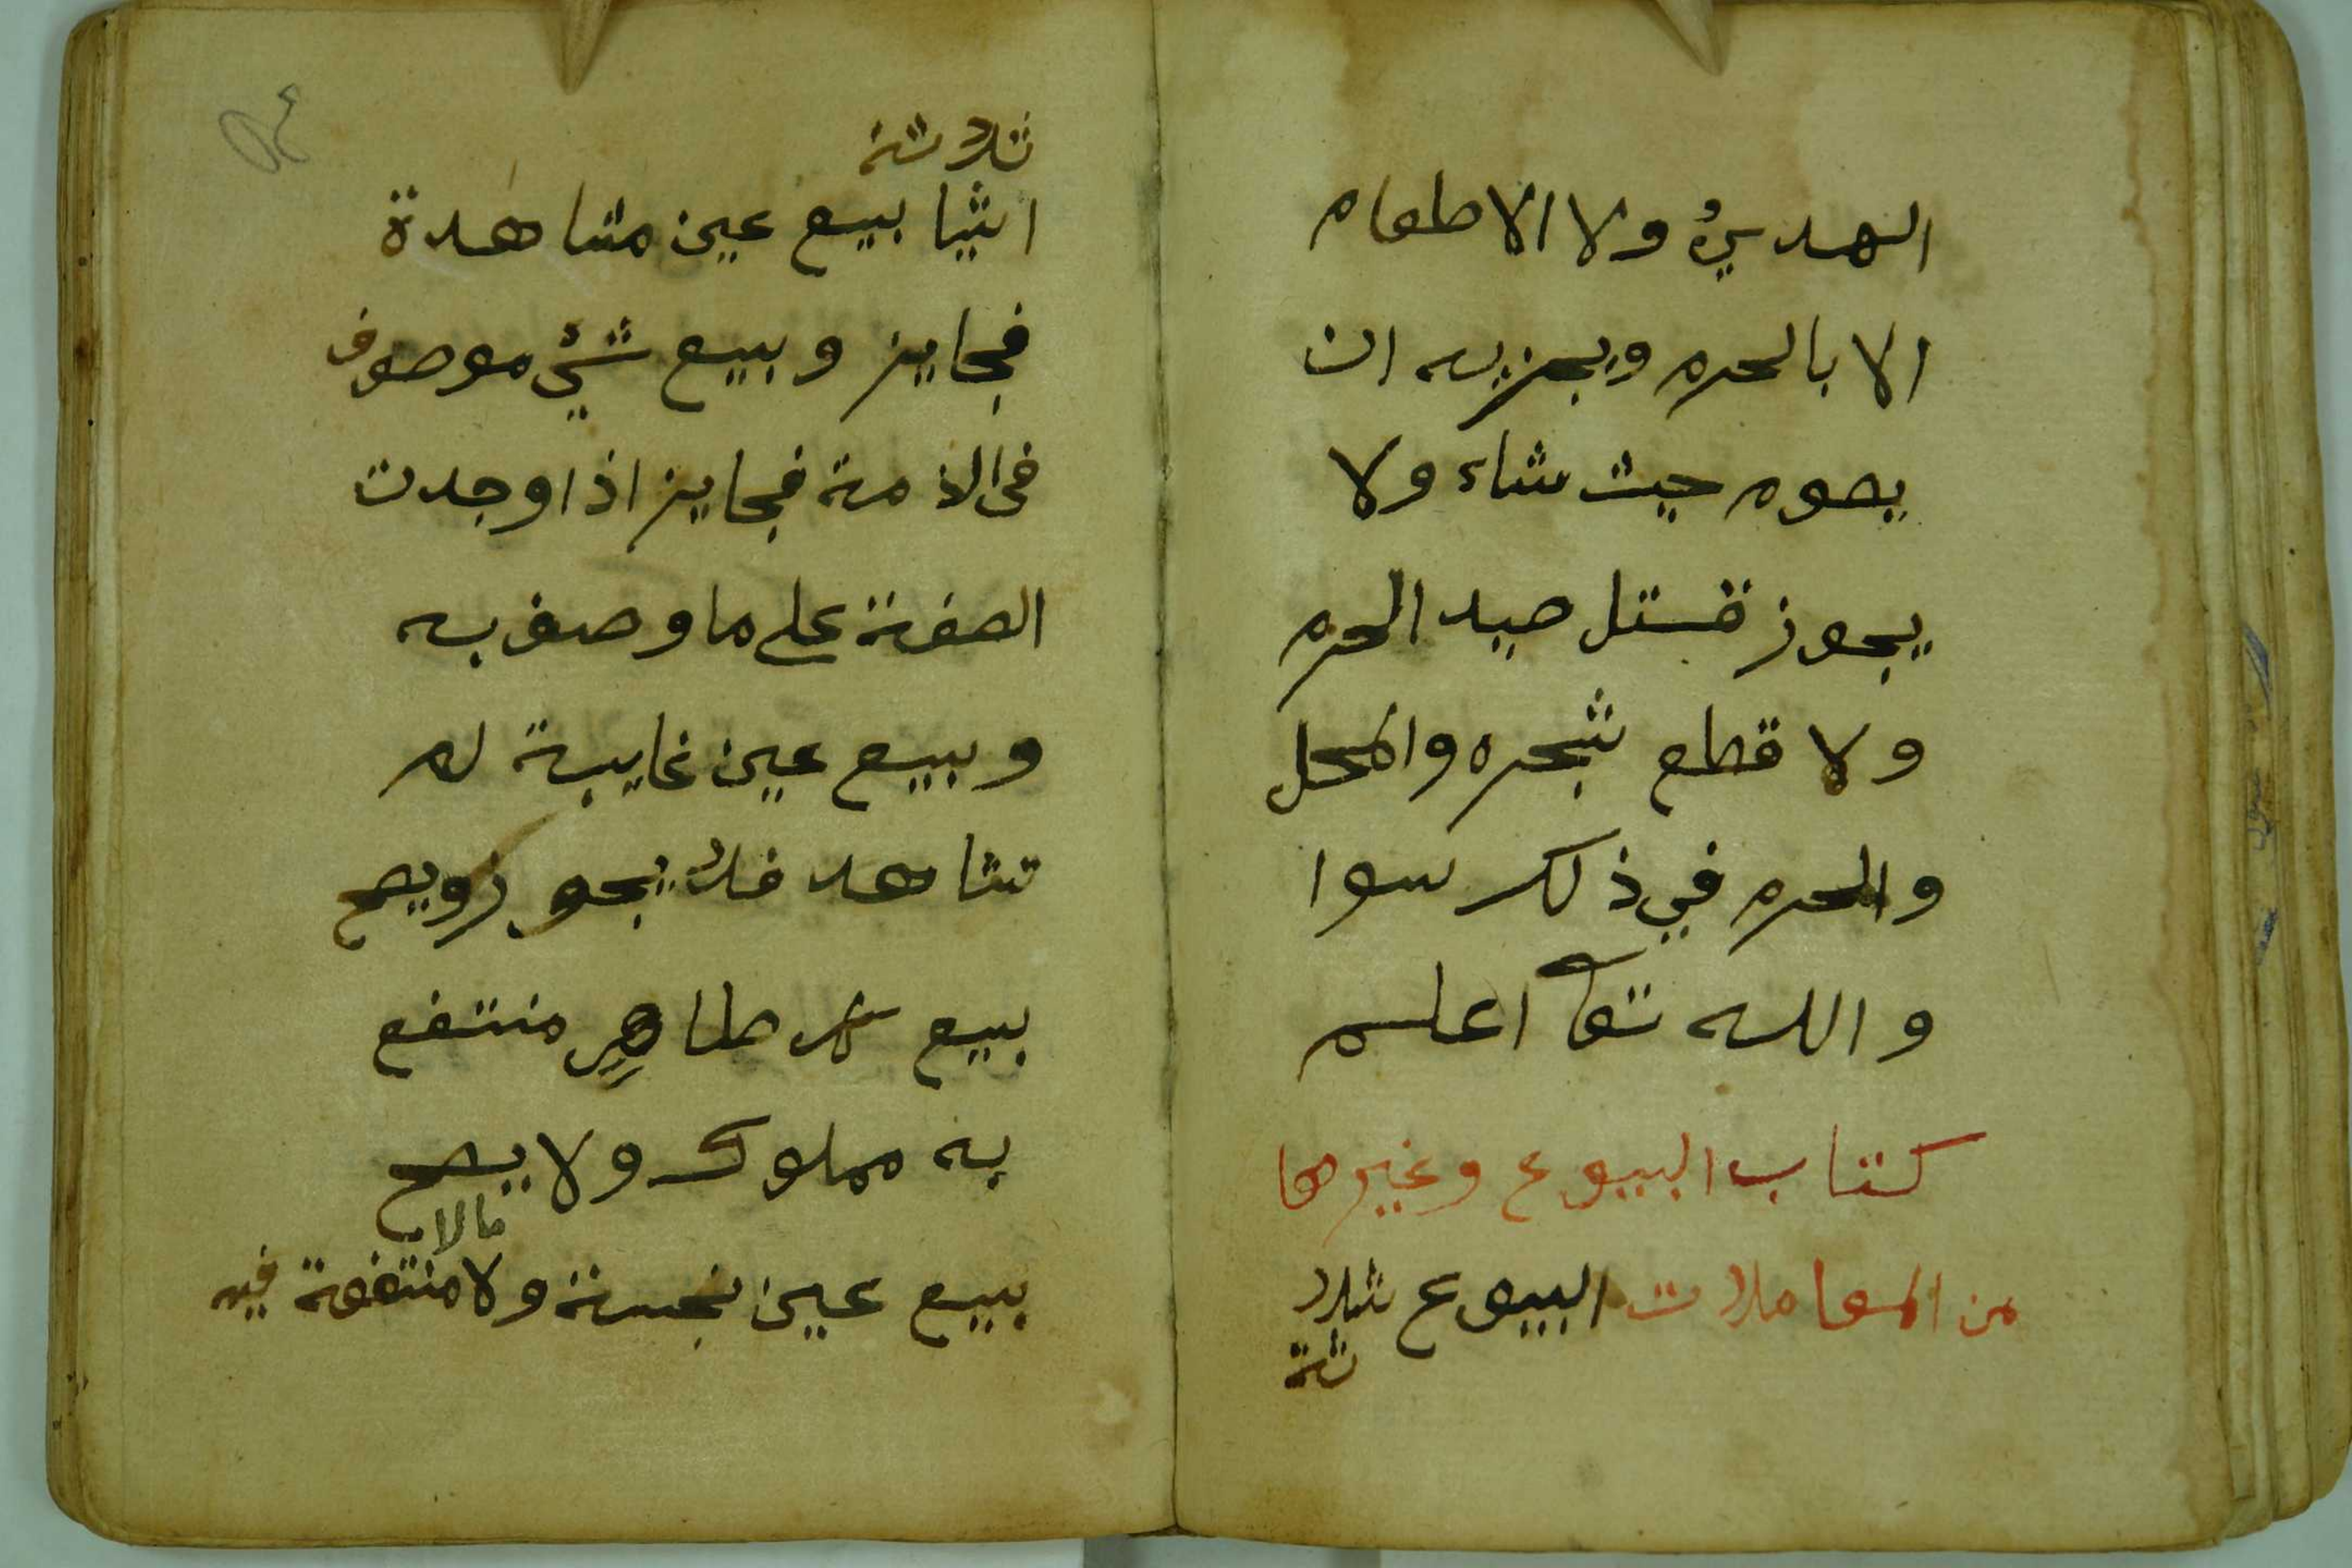 الهدي ولا الاطعام
الا بالحرم ويجزيه ان
يصوم حيث شاء ولا
يجوز قتل صيد الحرم
ولا قطع شجره والمحل
والمحرم في ذلك سوا
والله تعا اعلم
كتاب البيوع وغيرها
من المعاملات البيوع ثلا
ثة
ثلاثة
اشيا بيع عين مشاهدة
فجايز وبيع شيء موصوف
في الذمة فجايز اذا وجدت
الصفة على ما وصف به
وبيع عين غايبة لم
تشاهد فلا يجوز ويصح
بيع كل طاهر منتفع
به مملوك ولا يصح
بيع عين نجسة ولا مالا منتفعة فيه